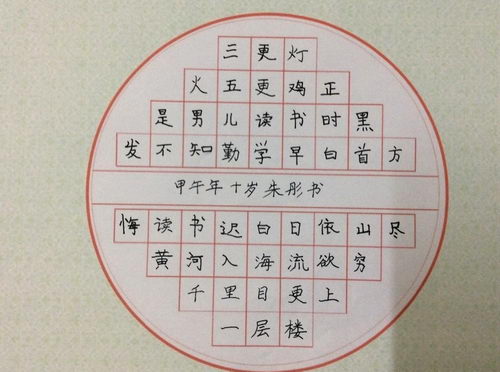 三更灯
火五更鸡正
是男儿读书时黑
发不知勤学早白首方
甲午年十岁朱彤书
悔读书迟白日依山尽
黄河入海流欲穷
千里目更上
一层楼